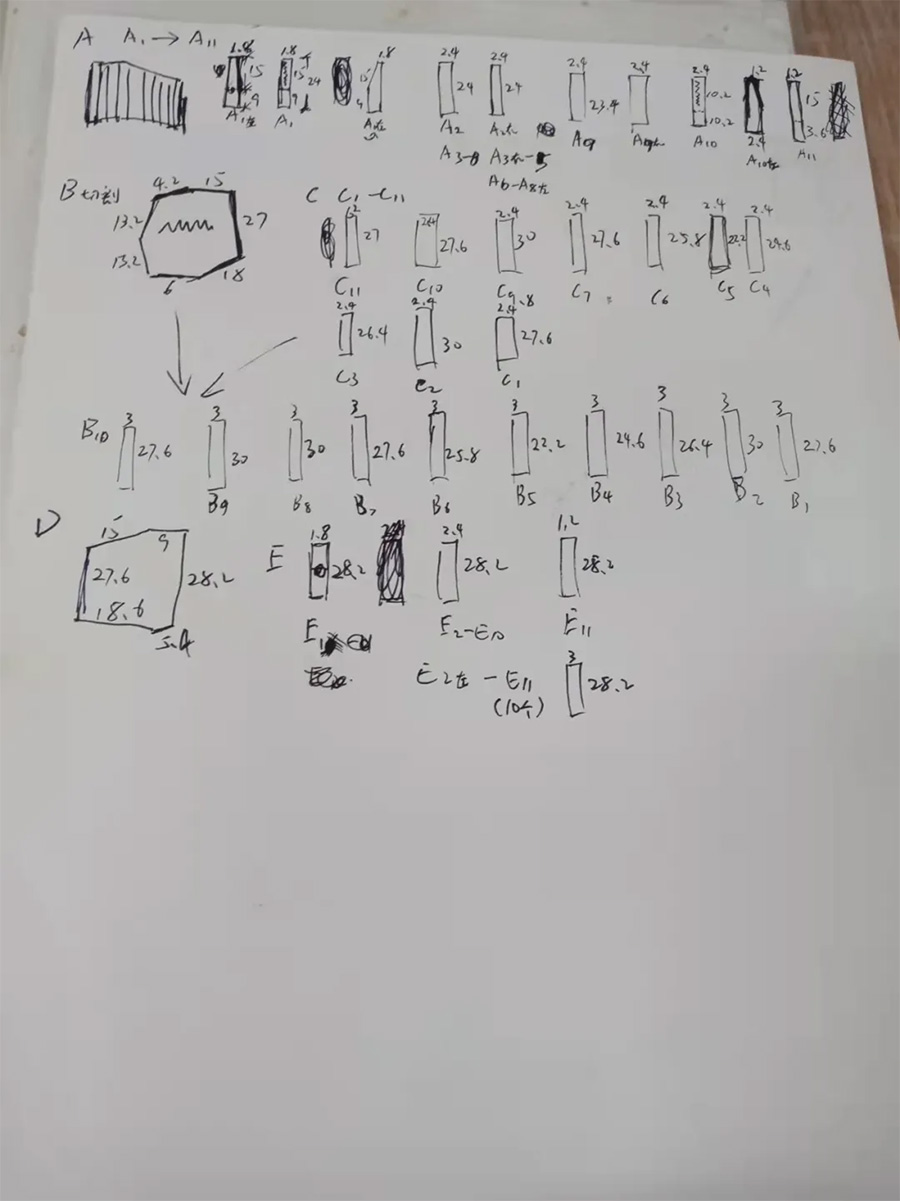 A A₁→A₁₁
1.8 15 9 A₁左
1.8 15 24 9 A₁
1.8 15 9 A₂左
2.4 24 A₂
2.4 24
2.4 23.4 A₉
2.4
2.4 10.2 10.2 A₁₀
1.2 2.4 A₁₀左
1.2 15 3.6 A₁₁
A₆-A₈左
B切割
4.2 15 27 18 6 13.2 13.2
C C₁-C₁₁
27 C₁₁
27.6 C₁₀
2.4 30 C₉.8
2.4 27.6 C₇
2.4 25.8 C₆
2.4 22.2 C₅
2.4 24.6 C₄
2.4 26.4 C₃
2.4 30 C₂
2.4 27.6 C₁
3 27.6 B₁₀
3 30 B₉
3 30 B₈
3 27.6 B₇
3 25.8 B₆
3 22.2 B₅
3 24.6 B₄
3 26.4 B₃
3 30 B₂
3 27.6 B₁
D
15 9 28.2 27.6 18.6 5.4
E
1.8 28.2 E₁
2.4 28.2 E₂-E₁₀
1.2 28.2 E₁₁
E₂左-E₁₁
(10个)
3 28.2